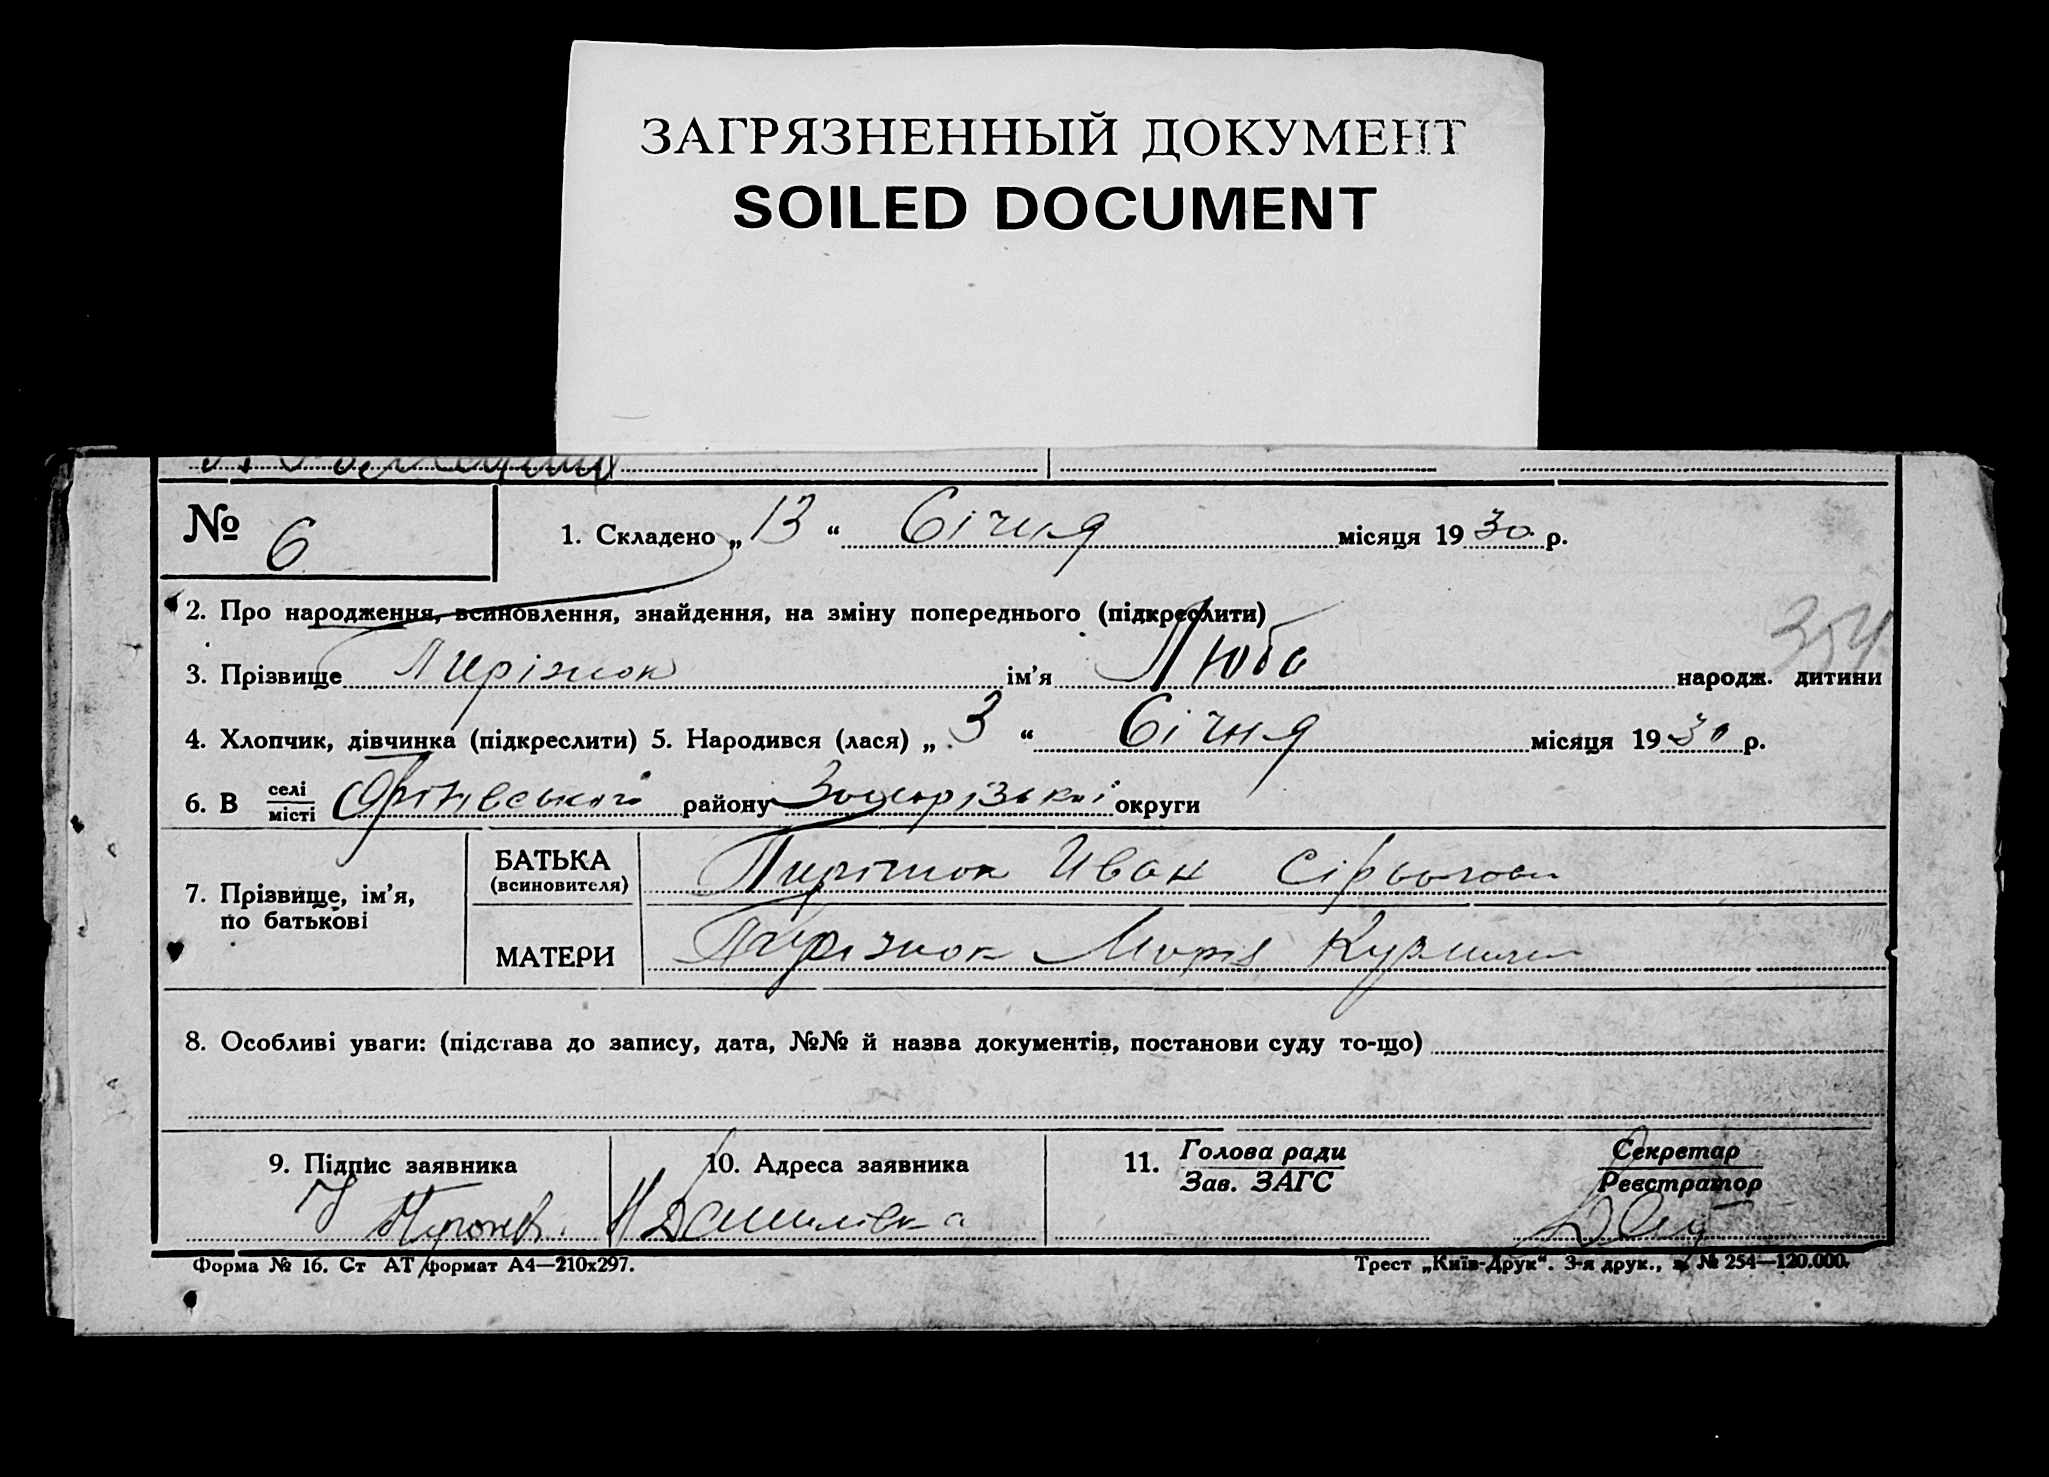 ЗАГРЯЗНЕННЫЙ ДОКУМЕНТ
SOILED DOCUMENT
№ 6
1. Складено „13“ Січня місяця 1930 р.
2. Про народження, всиновлення, знайдення, на зміну попереднього (підкреслити)
354
3. Прізвище Пиріжок ім’я Люба народж. дитини
4. Хлопчик, дівчинка (підкреслити) 5. Народився (лася) „3“ Січня місяця 1930 р.
6. В селі
місті району округи
7. Прізвище, ім’я,
по батькові
БАТЬКА
(всиновителя)
Пиріжок Иван
МАТЕРИ
Пиріжок Марія
8. Особливі уваги: (підстава до запису, дата, №№ й назва документів, постанови суду то-що)
9. Підпис заявника
10. Адреса заявника
11. Голова ради
Зав. ЗАГС
Секретар
Реєстратор
Форма № 16. Ст АТ формат А4—210х297.
Трест „Київ-Друк“. 3-я друк., з. № 254—120.000.